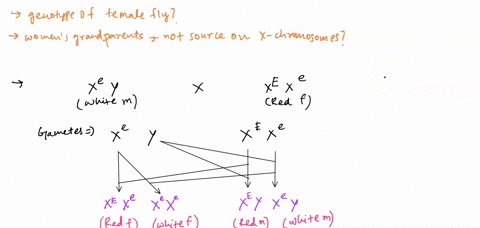 → genotype of female fly?
→ women's grandparents = not source on X-chromosomes?
→ X^e Y X X^E X^e
(white m) (Red f)
Gametes ⇒ X^e Y X^E X^e
X^E X^e X^e X^e X^E Y X^e Y
(Red f) (white f) (Red m) (white m)